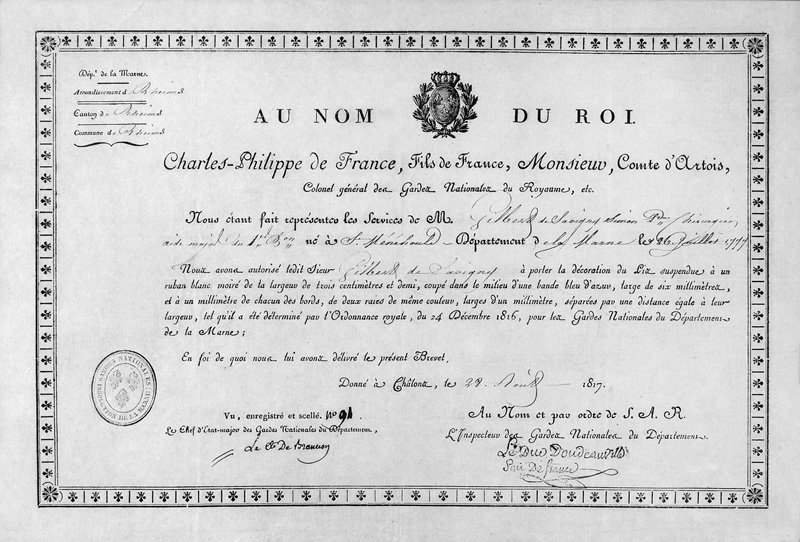 Dép.t de la Marne.
Arrondissement d Rheims
Canton de Rheims
Commune de Rheims
AU NOM DU ROI.
Charles-Philippe de France, Fils de France, Monsieur, Comte d'Artois,
Colonel général des Gardes Nationales du Royaume, etc.
Nous étant fait représenter les Services de M. Gilbert de Savigny Simon Chirurgien
aide major du 1er B.on né à Ste Ménéhould Département de la Marne le 26 Juillet 1777
Nous avons autorisé ledit Sieur Gilbert de Savigny à porter la décoration du Lis suspendue à un
ruban blanc moiré de la largeur de trois centimètres et demi, coupé dans le milieu d'une bande bleu d'azur, large de six millimètres,
et à un millimètre de chacun des bords, de deux raies de même couleur, larges d'un millimètre, séparées par une distance égale à leur
largeur, tel qu'il a été déterminé par l'Ordonnance royale, du 24 Décembre 1816, pour les Gardes Nationales du Département
de la Marne;
En foi de quoi nous lui avons délivré le présent Brevet.
Donné à Châlons, le 22 Août 1817.
GARDES NATIONALES
INSPECTION DE LA MARNE
Vu, enregistré et scellé. No 91
Le Chef d'Etat-major des Gardes Nationales du Département,
Au Nom et par ordre de S. A. R.
L'Inspecteur des Gardes Nationales du Département
Le Duc Doudeauville
Pair De france